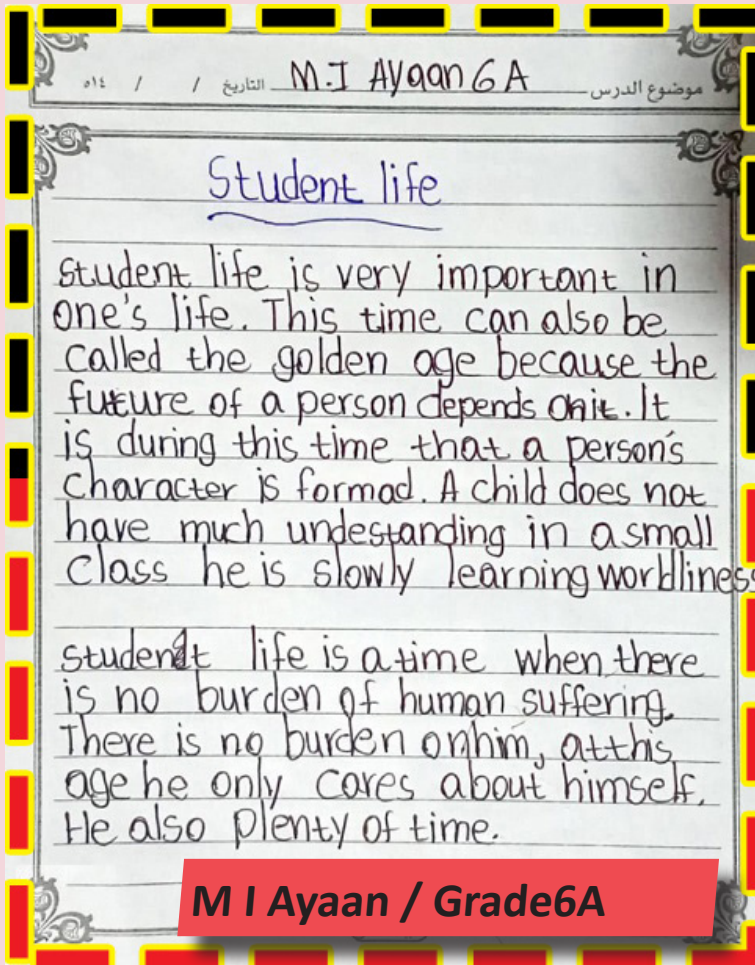 موضوع الدرس M.I Ayaan 6 A التاريخ / / ١٤٥
Student life
Student life is very important in
one's life. This time can also be
called the golden age because the
future of a person depends onit. It
is during this time that a person's
character is formad. A child does not
have much undestanding in a small
class he is slowly learning worldliness
student life is a time when there
is no burden of human suffering.
There is no burden on him, at this
age he only cares about himself.
He also plenty of time.
M I Ayaan / Grade6A